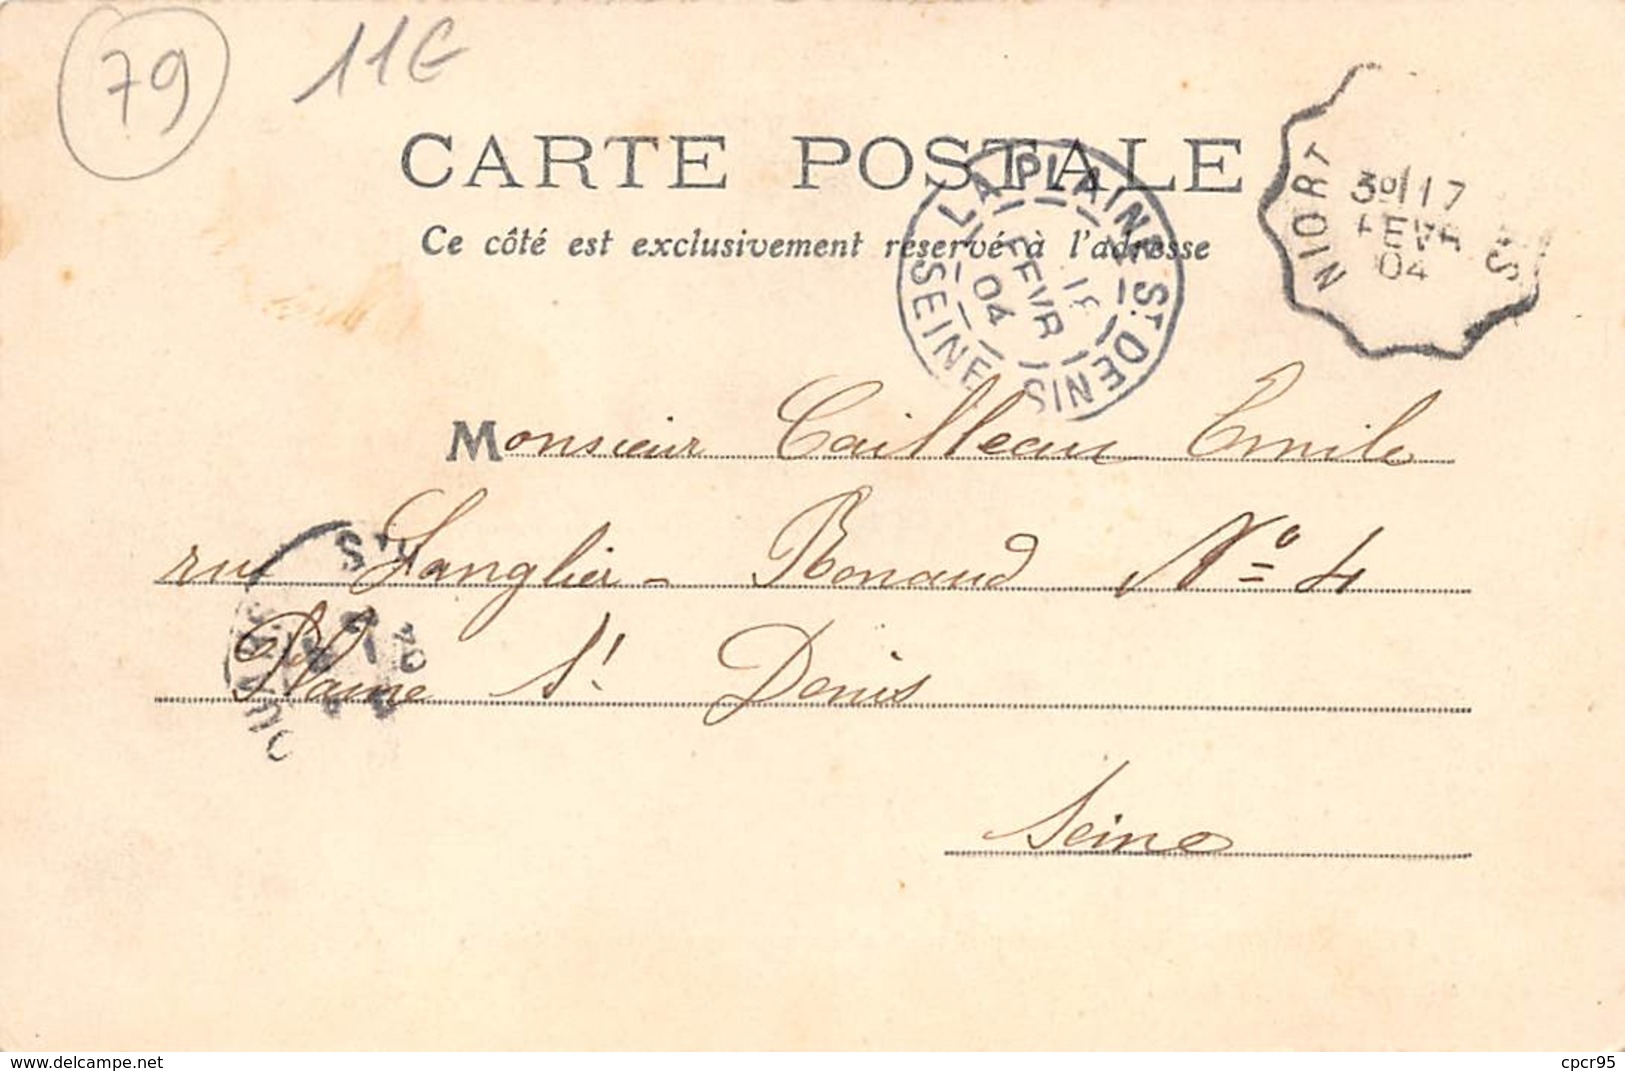 79
11€
CARTE POSTALE
Ce côté est exclusivement réservé à l'adresse
LA PLAINE ST DENIS
18
FEVR
04
SEINE
NIORT
3º/17
FEVR
04
Monsieur Cailleau Emile
rue Sanglier - Renaud Nº 4
Plaine St Denis
Seine
www.delcampe.net
cpcr95